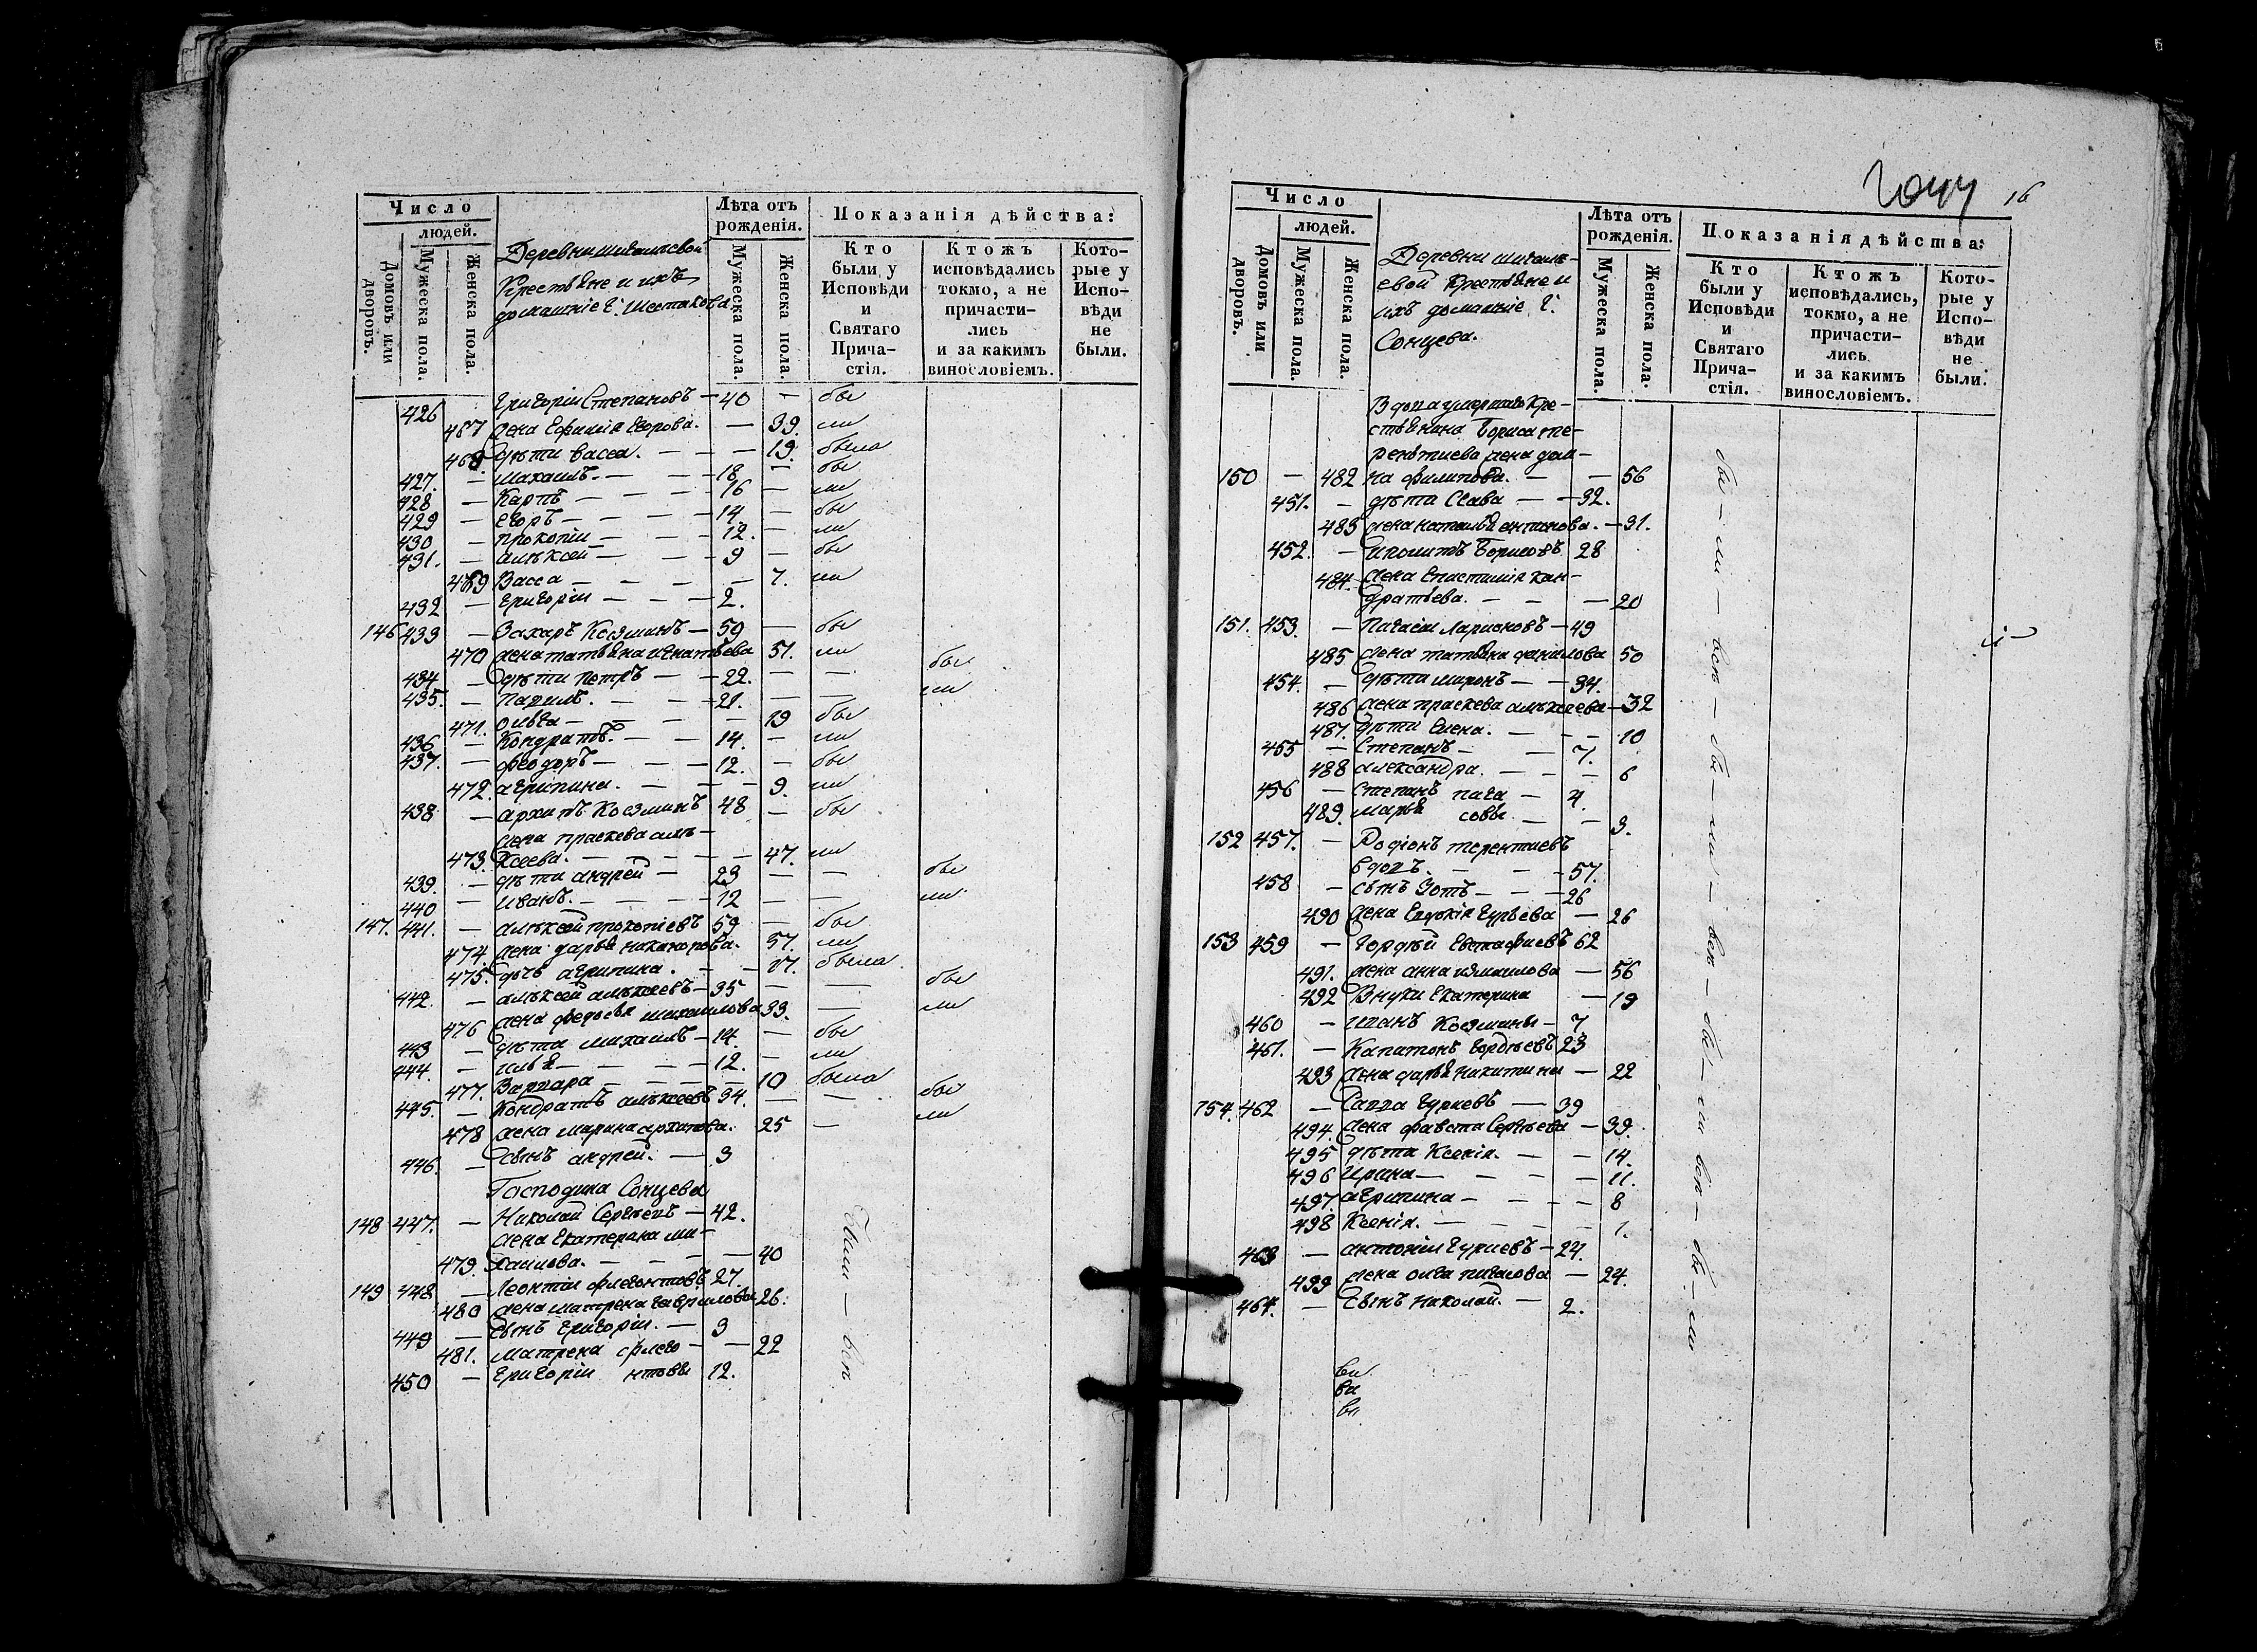 Число
людей.
Домовъ или дворовъ.
Мужеска пола.
Женска пола.
Крестьяне и ихъ
домашніе г. Шестакова
Лѣта отъ
рожденія.
Мужеска пола.
Женска пола.
Показанія дѣйства:
Кто
были у
Исповѣди
и
Святаго
Прича-
стія.
Ктожъ
исповѣдались
токмо, а не
причасти-
лись
и за какимъ
винословіемъ.
Кото-
рые у
Испо-
вѣди
не
были.
426 Григорій Степановъ — 40 — бы
467 жена Ефимія Егорова. — 39. ли
468. дѣти Васса. — — — 19. была
427. — Михаилъ. — — 18 — бы
428 — Карпъ — — — 16 — ли
429 — Егоръ — — — 14. — бы
430 — Прокопій — — — 12. — ли
431. — алѣксей — — 9 — бы
469 Васса — — — — 7. ли
432 — Григорій — — — 2.
146 433 — Захаръ Козминъ — 59 — бы
470 жена татьяна игнатьева 51. ли
434 — дѣти Петръ — — 22. — — бы
435. — Павелъ. — — — 21. — — ли
471. Ольга — — — — 19 бы
436 — Кондратъ. — — 14. — ли
437. — феодоръ — — — 12. — бы
472. агрипина. — — — 9. ли
438 — архипъ Козминъ 48 — бы
жена праскева алѣ-
473. ксеева. — — — — 47. ли
439. — дѣти андрей — 23 — — бы
440 — иванъ. — — — 12 — — ли
147. 441. — алѣксей прокопіевъ 59 — бы
474. жена дарья никанорова. 57. ли
475. дочь агрипина. — — 17. была
442. — алѣксей алѣксеевъ — 35 — — бы
476 жена федосья михаилова 33. — ли
443 — дѣти михаилъ — 14. — бы
444. — илья — — — 12. — ли
477. Варвара — — — — 10 была
445. — Кондратъ алѣксеевъ 34. — — бы
478 жена марина архипова. 25 — ли
446. — сынъ андрей. — 3
Господина Сонцева
148 447. — Николай Сергѣевъ — 42.
жена Екатерина ми-
479. хаилова. — — — 40
149 448 — Леонтій флегонтовъ 27.
480 жена матрена гаврилова 26.
449 — сынъ григорій. — 3
481. матрена флего- — 22
450 — григорій нтовы 12.
Были — всѣ
16
Число
людей.
Домовъ или дворовъ.
Мужеска пола.
Женска пола.
евой Крестьяне и
ихъ домашніе г.
Сонцева.
Лѣта отъ
рожденія.
Мужеска пола.
Женска пола.
Показанія дѣйства:
Кто
были у
Исповѣди
и
Святаго
Прича-
стія.
Ктожъ
исповѣдались,
токмо, а не
причасти-
лись
и за какимъ
винословіемъ.
Кото-
рые у
Испо-
вѣди
не
были.
Вдова умершаго Кре-
стьянина Бориса те-
рентиева жена дом-
150 — 482 на филипова. — — 56
451. — дѣти Сава — — 32.
483 жена наталья антипова. — 31.
452. — иполитъ Борисовъ 28
484. жена Епистимія кон-
дратьева. — — — 20
151. 453. — Пигасій Ларионовъ — 49
485 жена татьяна данилова 50
454. — дѣти миронъ — — 34.
486 жена праскева алѣксеева — 32
487. дѣти Елена. — — — 10
455 — Степанъ — — 7.
488 александра. — — — 6
456 — Степанъ пига — 4.
489. марья совы. — — 3.
152 457. — Родіонъ терентиевъ
вдовъ. — — — 57.
458 — сынъ Зотъ — — — 26
490 жена Евдокія Гурьева — 26
153 459 — гордѣй Евстафиевъ 62
491. жена анна измаилова — 56
492 Внуки Екатерина — 19
460 — иванъ Козмины — 7
461. — Капитонъ гордѣевъ 23
493 жена дарья никитина — 22
154. 462 — Савва гуриевъ — 39
494. жена фавста Сергѣева — 39.
495 дѣти Ксенія. — — 14.
496 Ирина — — — — 11.
497. агрипина — — — — 8
498 Ксенія. — — — — 1.
463 — антоній гуриевъ — 24.
499 жена олга пигасова — 24.
464. — Сынъ николай. — 2.
бы — ли — всѣ — бы — ли — всѣ — бы — ли всѣ — бы — ли